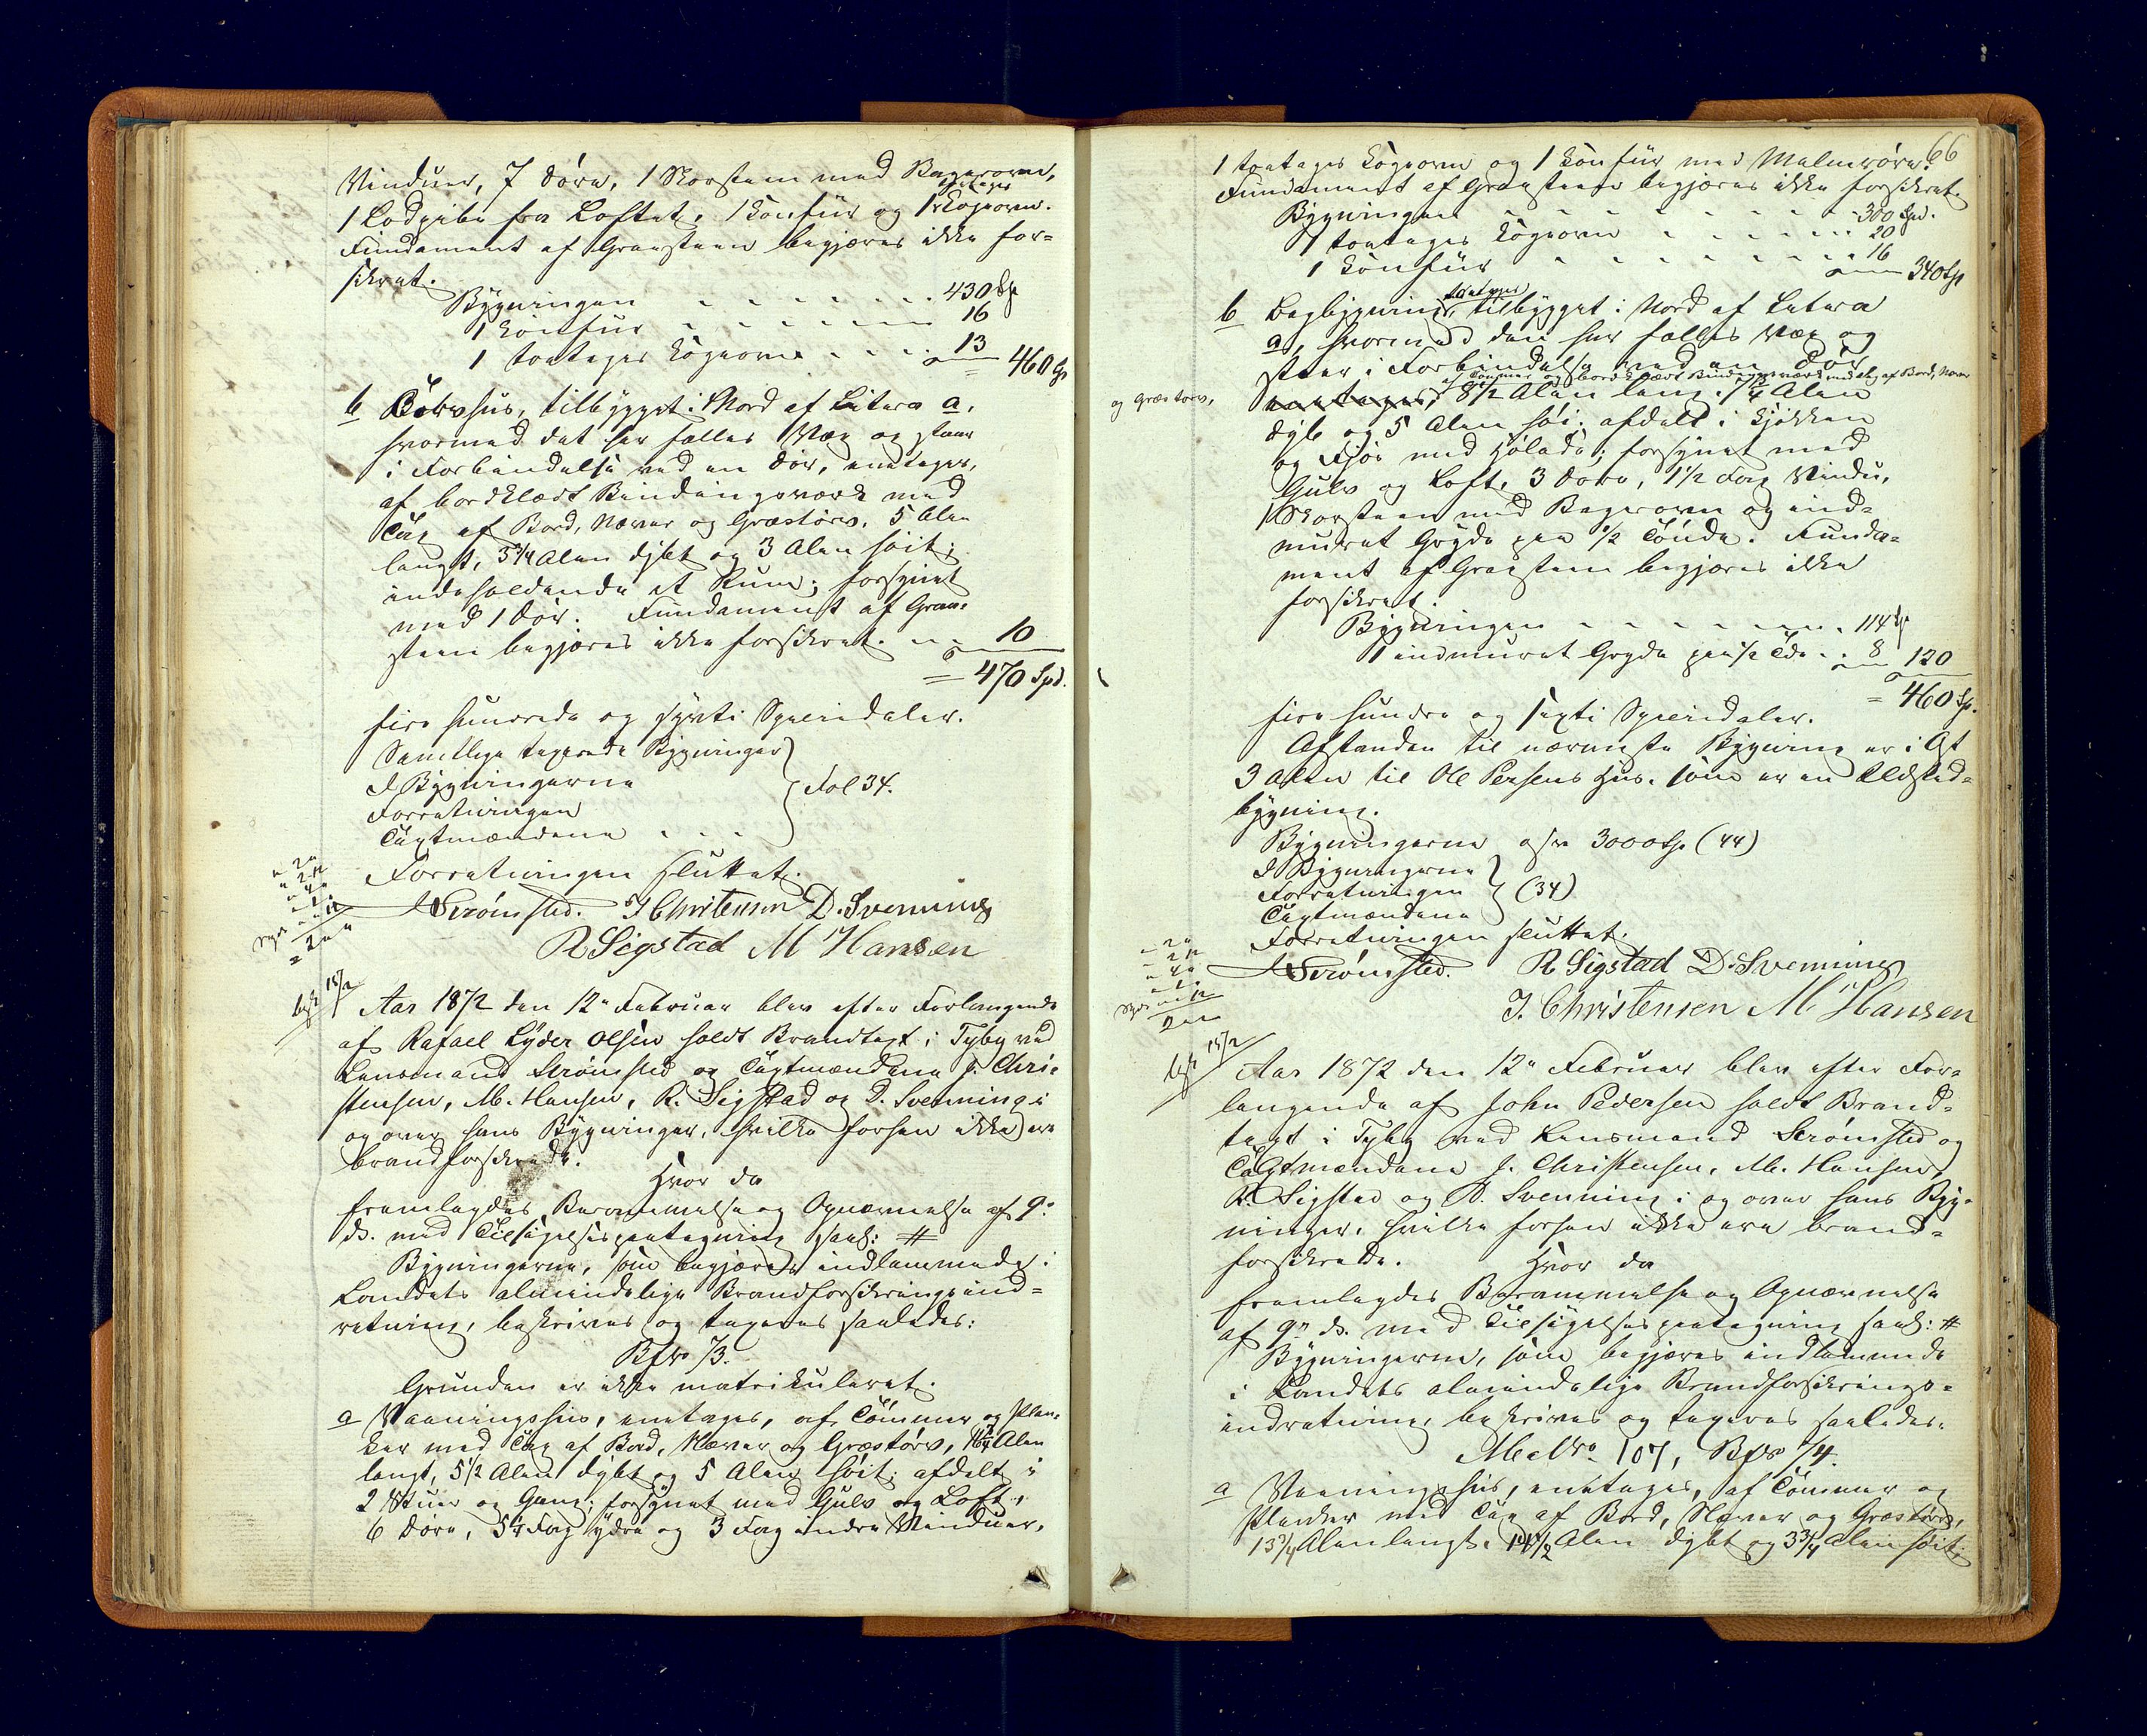 Vinduer, 7 Döre, 1 Skorsteen med Bagerovn,
1 Lodpibe fra Loftet, 1 Komfür og 1 toetages Kogeovn.
Fundament af Graasteen begjæres ikke for-
sikret.
Bygningen - - - - - - 430 Sp
1 Komfür - - - - - - 16
1 toetages Kogeovn - - - 13
460 Sp
b Törvhus, tilbygget i Nord af Litera a,
hvormed det har fælles Væg og staar
i Forbindelse ved en Dör, eenetages,
af bordklædt Bindingsværk med
Tag af Bord, Næver og Græstörv, 5 Alen
langt, 3 3/4 Alen dybt og 3 Alen höit;
indeholdende et Rum; forsynet
med 1 Dör. Fundament af Graa-
steen begjæres ikke forsikret. - - 10
= 470 Spd.
fire hundrede og sytti Speciedaler.
Samtlige taxerede Bygninger
I Bygningerne
Forretningen
Taxtmændene - - -
Fol 34.
Forretningen sluttet.
Strömsted. J Christensen D. Svenning
R Sigstad M Hansen
15/2
Aar 1872 den 12te Februar blev efter Forlangende
af Rafael Lyder Olsen holdt Brandtaxt i Tyby ved
Lensmand Strömsted og Taxtmændene J. Chri-
stensen, M. Hansen, R. Sigstad og D. Svenning i
og over hans Bygninger, hvilke forhen ikke ere
brandforsikrede.
Hvor da
fremlagdes Berammelse og Opnævnelse af 9de
ds. med Tilsigelsespaategning saal: #
Bygningerne, som begjæres indlemmede i
Landets almindelige Brandforsikringsind-
retning, beskrives og taxeres saaledes:
B No 73.
Grunden er ikke matrikuleret.
a Vaaningshus, eenetages, af Tömmer og Plan-
ker med Tag af Bord, Næver og Græstörv, 16 1/4 Alen
langt, 5 1/2 Alen dybt og 5 Alen höit; afdelt i
2 Stuer og Gang; forsynet med Gulv og Loft,
6 Döre, 5 1/4 Fag ydre og 3 Fag indre Vinduer,
66
1 toetages Kogeovn og 1 Komfür med Malmrör.
Fundament af Graasteen begjæres ikke forsikret
Bygningen - - - - - - 300 Spd.
1 toetages Kogeovn - - - - - 20
1 Komfür - - - - - - 16
340 Sp
b Bagbygning, toetages tilbygget i Nord af Litera
a, hvormed den har fælles Væg og
staar i Forbindelse med en Dör
af Tömmer og bordklædt Bindingsværk med Tag af Bord, Næver
og Græstörv,
eenetages, 8 1/2 Alen lang, 7 1/4 Alen
dyb og 5 Alen höi; afdelt i Kjökken
og Fjös med Hölade; forsynet med
Gulv og Loft, 3 Döre, 1 1/2 Fag Vindu,
1 Skorsteen med Bagerovn og ind-
muret Gryde paa 1/2 Tönde. Funda-
ment af Graasteen begjæres ikke
forsikret.
Bygningen - - - - - - 114 Sp
1 indmuret Gryde paa 1/2 Tde - - 8 120
= 460 Sp.
fire hundre og sexti Speciedaler.
Afstanden til nærmeste Bygning er i Öst
3 Alen til Ole Persens Hus, som er en Ildsted-
bygning.
Bygningerne 3000 Sp (44)
I Bygningerne
Forretningen
Taxtmændene
(34)
Forretningen sluttet.
Strömsted. R Sigstad D. Svenning
J. Christensen M Hansen
15/2
Aar 1872 den 12te Februar blev efter For-
langende af John Pedersen holdt Brand-
taxt i Tyby ved Lensmand Strömsted og
Taxtmændene J. Christensen, M. Hansen,
R. Sigstad og D. Svenning i og over hans Byg-
ninger, hvilke forhen ikke ere brand-
forsikrede. Hvor da
fremlagdes Berammelse og Opnævnelse
af 9de ds. med Tilsigelsespaategning saal: #
Bygningerne, som begjæres indlemmede
i Landets almindelige Brandforsikrings-
indretning, beskrives og taxeres saaledes.
Mat No. 107, B No 74.
a Vaaningshus, eenetages, af Tömmer og
Planker med Tag af Bord, Næver og Græstörv,
13 3/4 Alen langt, Alen dybt og 3 3/4 Alen höit;